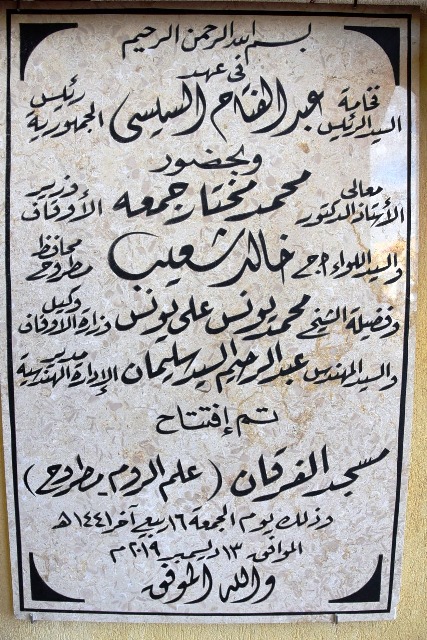 بسم الله الرحمن الرحيم
فى عهد
فخامة السيد الرئيس عبد الفتاح السيسى رئيس الجمهورية
وبحضور
معالى الأستاذ الدكتور محمد مختار جمعه وزير الأوقاف
والسيد اللواء أ.ح خالد شعيب محافظ مطروح
وفضيلة الشيخ محمد يونس على يونس وكيل وزارة الأوقاف
والسيد المهندس عبد الرحيم السيد سليمان مدير الإدارة الهندسية
تم إفتتاح
مسجد الفرقان (علم الروم - مطروح)
وذلك يوم الجمعة ١٦ ربيع آخر ١٤٤١هـ
الموافق ١٣ ديسمبر ٢٠١٩م
والله الموفق